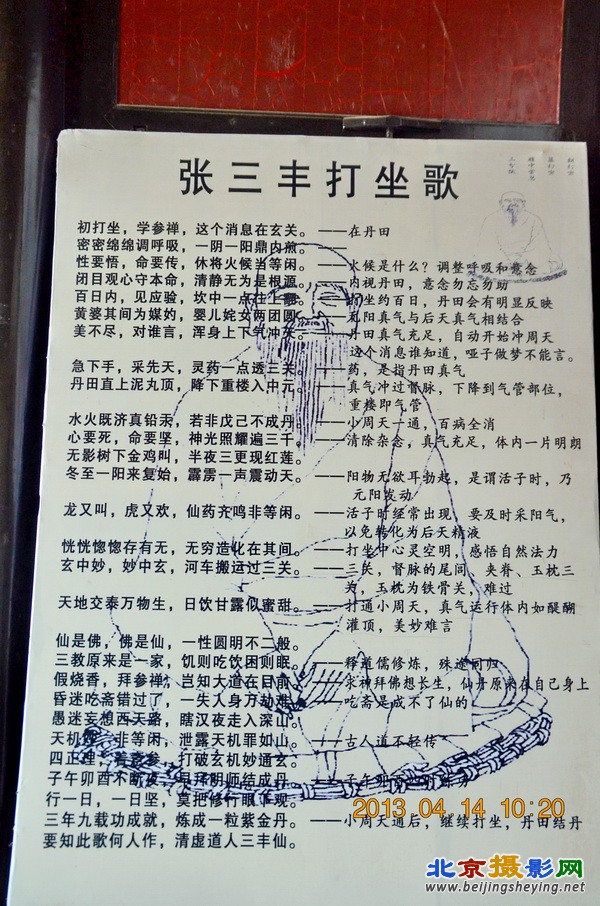 张三丰打坐歌
初打坐，学参禅，这个消息在玄关。——在丹田
密密绵绵调呼吸，一阴一阳鼎内煎。——
性要悟，命要传，休将火候当等闲。——火候是什么？调整呼吸和意念
闭目观心守本命，清静无为是根源。——内视丹田，意念勿忘勿助
百日内，见应验，坎中一点往上翻。——打坐约百日，丹田会有明显反映
黄婆其间为媒妁，婴儿姹女两团圆。——元阳真气与后天真气相结合
美不尽，对谁言，浑身上下气冲天。——丹田真气充足，自动开始冲周天
这个消息谁知道，哑子做梦不能言。
急下手，采先天，灵药一点透三关。——药，是指丹田真气
丹田直上泥丸顶，降下重楼入中元。——真气冲过督脉，下降到气管部位，
重楼即气管
水火既济真铅汞，若非戊己不成丹。——小周天一通，百病全消
心要死，命要坚，神光照耀遍三千。——清除杂念，真气充足，体内一片明朗
无影树下金鸡叫，半夜三更现红莲。
冬至一阳来复始，霹雳一声震动天。——阳物无欲耳勃起，是谓活子时，乃
元阳发动
龙又叫，虎又欢，仙药齐鸣非等闲。——活子时经常出现，要及时采阳气，
以免转化为后天精液
恍恍惚惚存有无，无穷造化在其间。——打坐中心灵空明，感悟自然法力
玄中妙，妙中玄，河车搬运过三关。——三关，督脉的尾闾、夹脊、玉枕三
关，玉枕为铁骨关，难过
天地交泰万物生，日饮甘露似蜜甜。——打通小周天，真气运行体内如醍醐
灌顶，美妙难言
仙是佛，佛是仙，一性圆明不二般。
三教原来是一家，饥则吃饮困则眠。——释道儒修炼，殊途同归
假烧香，拜参禅，岂知大道在目前。——求神拜佛想长生，仙丹原来在自己身上
昏迷吃斋错过了，一失人身万劫难。——吃斋是成不了仙的
愚迷妄想西天路，瞎汉夜走入深山。
天机妙，非等闲，泄露天机罪如山。——古人道不轻传
四正理，着意参，打破玄机妙通玄。
子午卯酉不断夜，早拜明师结成丹。——子午卯酉
行一日，一日坚，莫把修行眼下观。
三年九载功成就，炼成一粒紫金丹。——小周天通后，继续打坐，丹田结丹
要知此歌何人作，清虚道人三丰仙。
2013.04.14 10:20
北京摄影网
www.beijingsheying.net